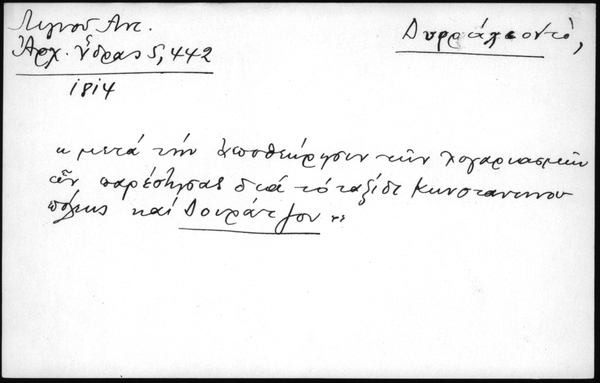 Λιγνού Αντ.
Ἀρχ. Ὕδρας 5, 442
1814
Δυρράχιον τό,
"μετά τήν ἐπιθεώρησιν τῶν λογαριασμῶν
παρέστησας διά τό ταξίδι Κωνσταντινου
πόλεως καί Δουράτζον"